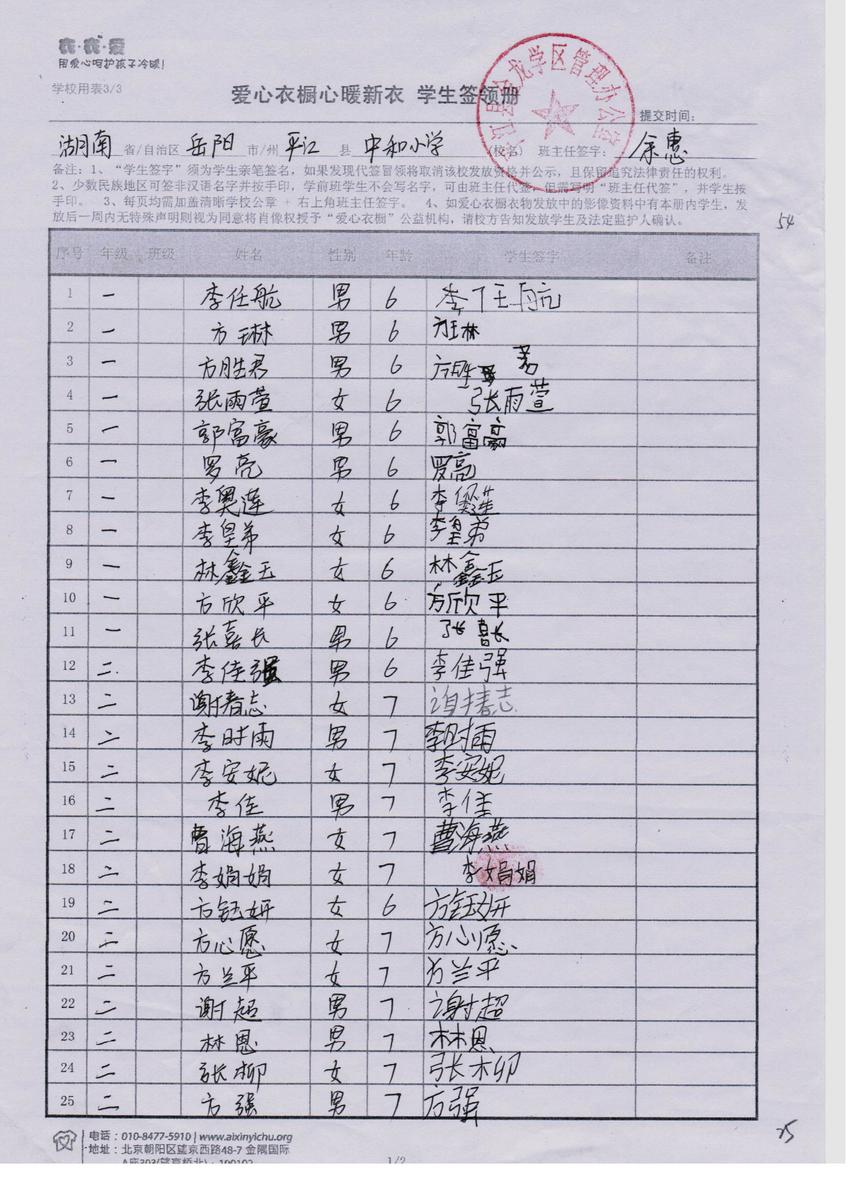 我·我·爱
用爱心呵护孩子冷暖!
学校用表3/3
爱心衣橱心暖新衣 学生签领册
提交时间:
湖南 省/自治区 岳阳 市/州 平江 县 中和小学 (校名) 班主任签字: 余惠
备注:1、“学生签字”须为学生亲笔签名,如果发现代签冒领将取消该校发放资格并公示,且保留追究法律责任的权利。
2、少数民族地区可签非汉语名字并按手印,学前班学生不会写名字,可由班主任代签,但需写明“班主任代签”,并学生按
手印。 3、每页均需加盖清晰学校公章 + 右上角班主任签字。 4、如爱心衣橱衣物发放中的影像资料中有本册内学生,发
放后一周内无特殊声明则视为同意将肖像权授予“爱心衣橱”公益机构,请校方告知发放学生及法定监护人确认。
54
序号 年级 班级 姓名 性别 年龄 学生签字 备注
1 一 李任航 男 6 李任航
2 一 方琳 男 6 方琳
3 一 方胜君 男 6 方胜君
4 一 张雨萱 女 6 张雨萱
5 一 郭富豪 男 6 郭富豪
6 一 罗亮 男 6 罗亮
7 一 李奥莲 女 6 李
8 一 李皇弟 女 6 李皇弟
9 一 林鑫玉 女 6 林鑫玉
10 一 方欣平 女 6 方欣平
11 一 张嘉长 男 6 张长
12 二 李佳强 男 6 李佳强
13 二 谢春志 女 7 谢春志
14 二 李时雨 男 7 李时雨
15 二 李安妮 女 7 李安妮
16 二 李佳 男 7 李佳
17 二 曹海燕 女 7 曹海燕
18 二 李娟娟 女 7 李娟娟
19 二 方钰妍 女 6 方钰妍
20 二 方心愿 女 7 方心愿
21 二 方兰平 女 7 方兰平
22 二 谢超 男 7 谢超
23 二 林恩 男 7 林恩
24 二 张柳 女 7 张柳
25 二 方强 男 7 方强
电话:010-8477-5910 | www.aixinyichu.org
地址:北京朝阳区望京西路48-7 金隅国际
A座303(望京桥北)·100102
1/2
25